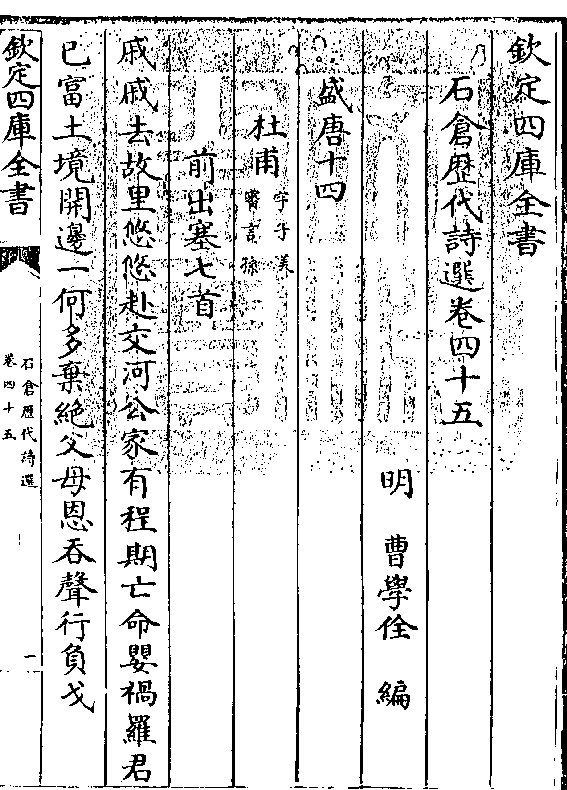 欽定四庫全書
石倉歴代詩選卷四十五
明 曹學佺 編
盛唐十四
杜甫
字子美
審言孫
前出塞七首
戚戚去故里悠悠赴交河公家有程期亡命嬰禍羅君
已富土境開邊一何多棄絶父母恩吞聲行負戈
欽定四庫全書
石倉歴代詩選
卷四十五
一